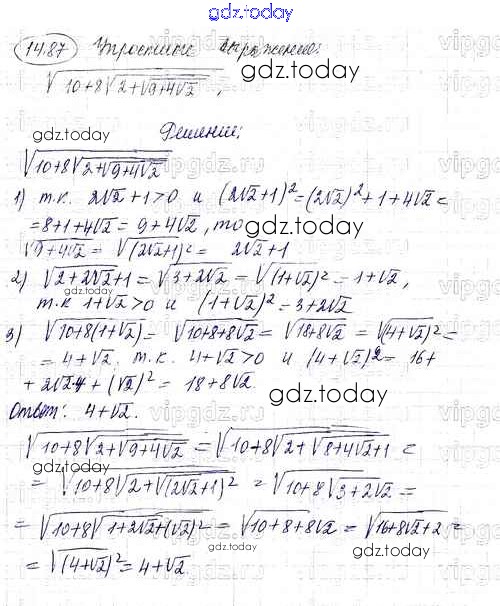 gdz.today
14.87 Упростите выражение:
√(10+8√(2+√(9+4√2))),
gdz.today
Решение:
gdz.today
√(10+8√(2+√(9+4√2)))
1) т.к. 2√2+1>0 и (2√2+1)²=(2√2)²+1+4√2=
=8+1+4√2=9+4√2, то
gdz.today
√(9+4√2)=√((2√2+1)²)=2√2+1
2) √(2+2√2+1)=√(3+2√2)=√((1+√2)²)=1+√2,
т.к 1+√2>0 и (1+√2)²=3+2√2
gdz.today
3) √(10+8(1+√2))=√(10+8+8√2)=√(18+8√2)=√((4+√2)²)=
=4+√2. т.к. 4+√2>0 и (4+√2)²=16+
+2√2·4+(√2)²=18+8√2.
gdz.today
Ответ: 4+√2.
√(10+8√(2+√(9+4√2)))=√(10+8√(2+√(8+4√2+1)))=
gdz.today
=√(10+8√(2+√((2√2+1)²)))=√(10+8√(3+2√2))=
=√(10+8√(1+2√2+(√2)²))=√(10+8+8√2)=√(16+8√2+2)=
gdz.today
=√((4+√2)²)=4+√2.
gdz.today